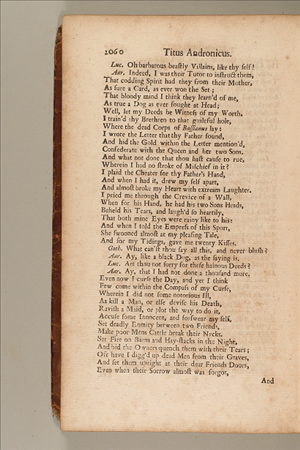 1060 Titus Andronicus.
Luc. Oh barbarous beastly Villains, like thy self!
Aar. Indeed, I was their Tutor to instruct them,
That codding Spirit had they from their Mother,
As sure a Card, as ever won the Set;
That bloody mind I think they learn'd of me,
As true a Dog as ever fought at Head;
Well, let my Deeds be Witness of my Worth.
I train'd thy Brethren to that guileful hole,
Where the dead Corps of Bassianus lay:
I wrote the Letter that thy Father found,
And hid the Gold within the Letter mention'd,
Confederate with the Queen and her two Sons,
And what not done that thou hast cause to rue,
Wherein I had no stroke of Mischief in it?
I plaid the Cheater for thy Father's Hand,
And when I had it, drew my self apart,
And almost broke my Heart with extream Laughter.
I pried me through the Crevice of a Wall,
When for his Hand, he had his two Sons Heads,
Beheld his Tears, and laugh'd so heartily,
That both mine Eyes were rainy like to his:
And when I told the Empress of this Sport,
She swooned almost at my pleasing Tale,
And for my Tidings, gave me twenty Kisses.
Goth. What can'st thou say all this, and never blush?
Aar. Ay, like a black Dog, as the saying is.
Luc. Art thou not sorry for these hainous Deeds?
Aar. Ay, that I had not done a thousand more,
Even now I curse the Day, and yet I think
Few come within the Compass of my Curse,
Wherein I did not some notorious Ill,
As kill a Man, or else devise his Death,
Ravish a Maid, or plot the way to do it,
Accuse some Innocent, and forswear my self,
Set deadly Enmity between two Friends,
Make poor Mens Cattle break their Necks,
Set Fire on Barns and Hay-stacks in the Night,
And bid the Owners quench them with their Tears;
Oft have I digg'd up dead Men from their Graves,
And set them upright at their dear Friends Doors,
Even when their Sorrow almost was forgot,
And